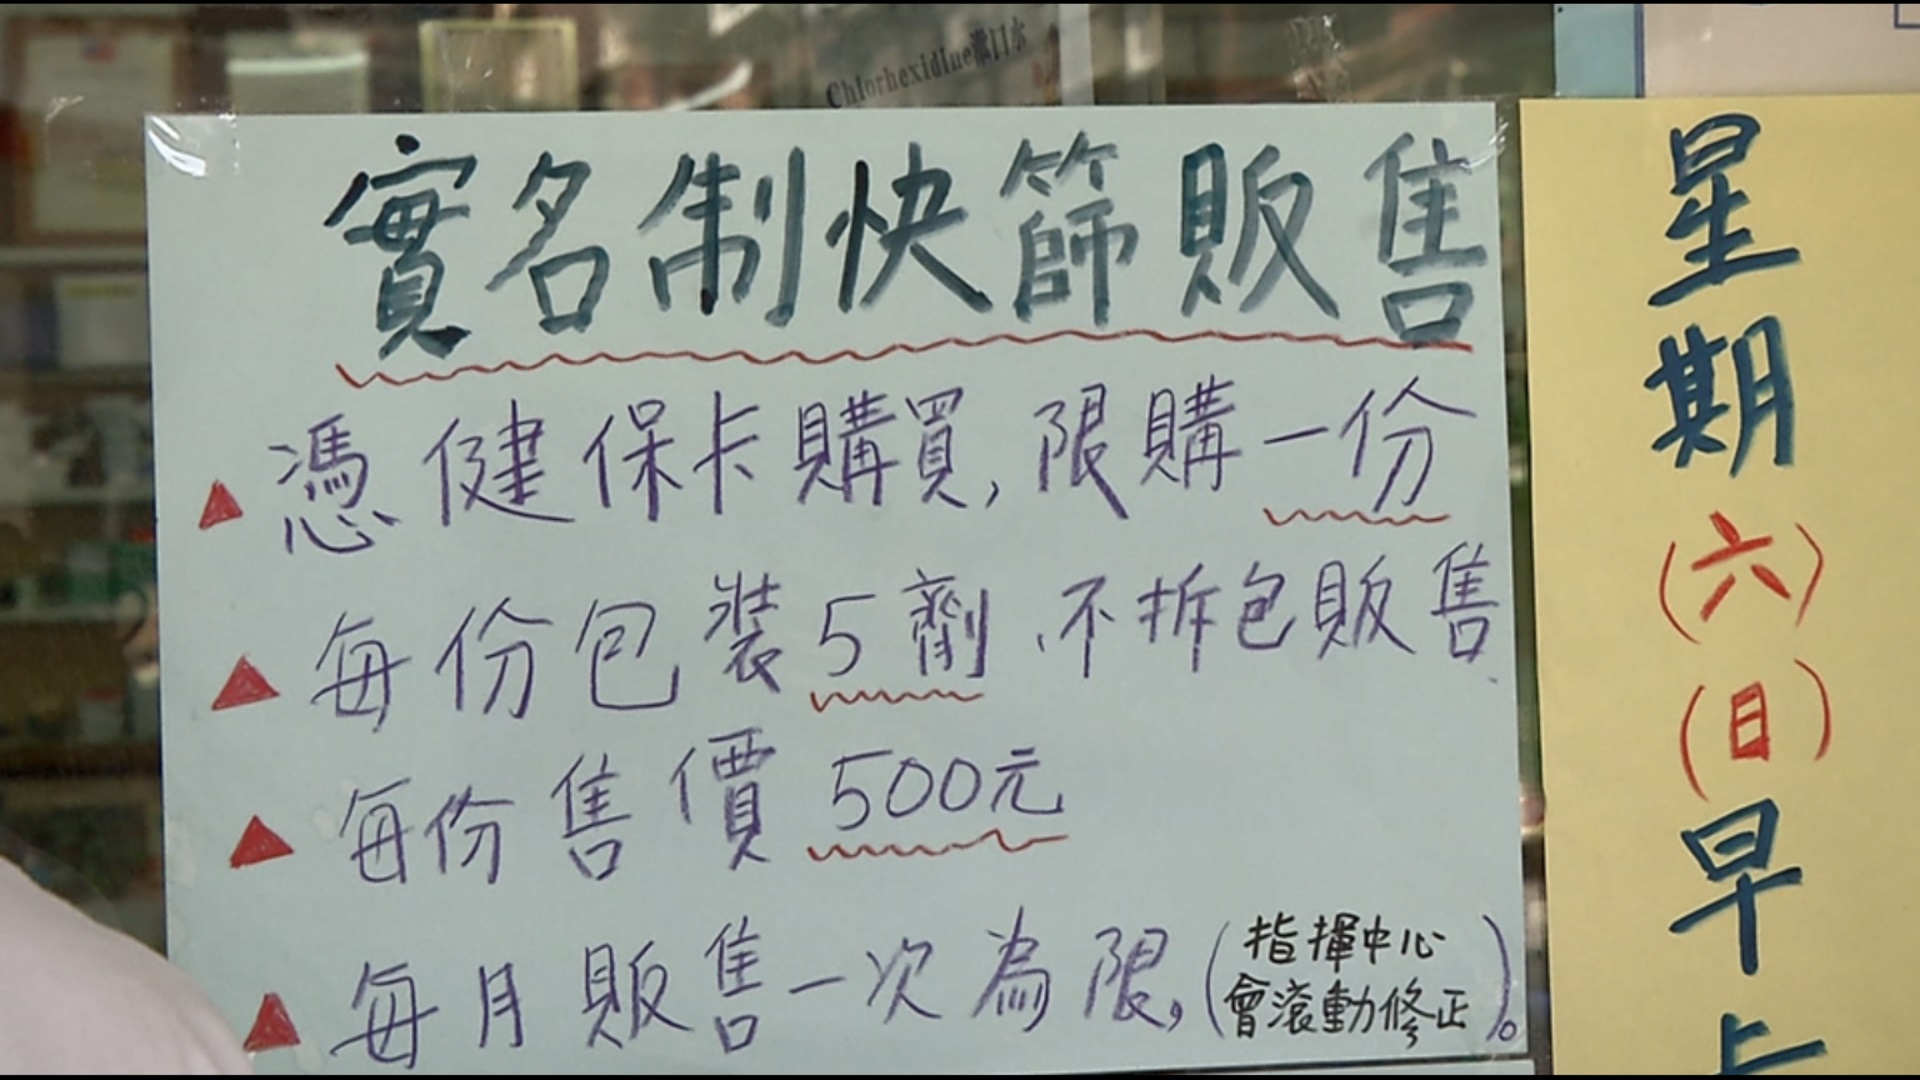 Chlorhexidine漱口水
實名制快篩販售
▲憑健保卡購買,限購一份
▲每份包裝5劑、不拆包販售
▲每份售價500元
▲每月販售一次為限,(指揮中心
會滾動修正)。
星期(六)(日)早上